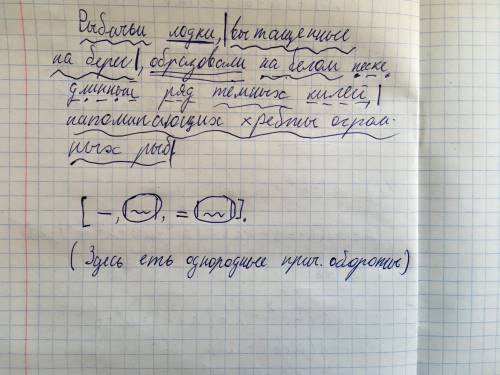 Рыбачьи лодки,|вытащенные
на берег|, образовали на белом песке
длинный ряд темных килей,|
напоминающих хребты огром-
ных рыб|
[-, |~|, = |~|].
(Здесь еть однородные прич. обороты)